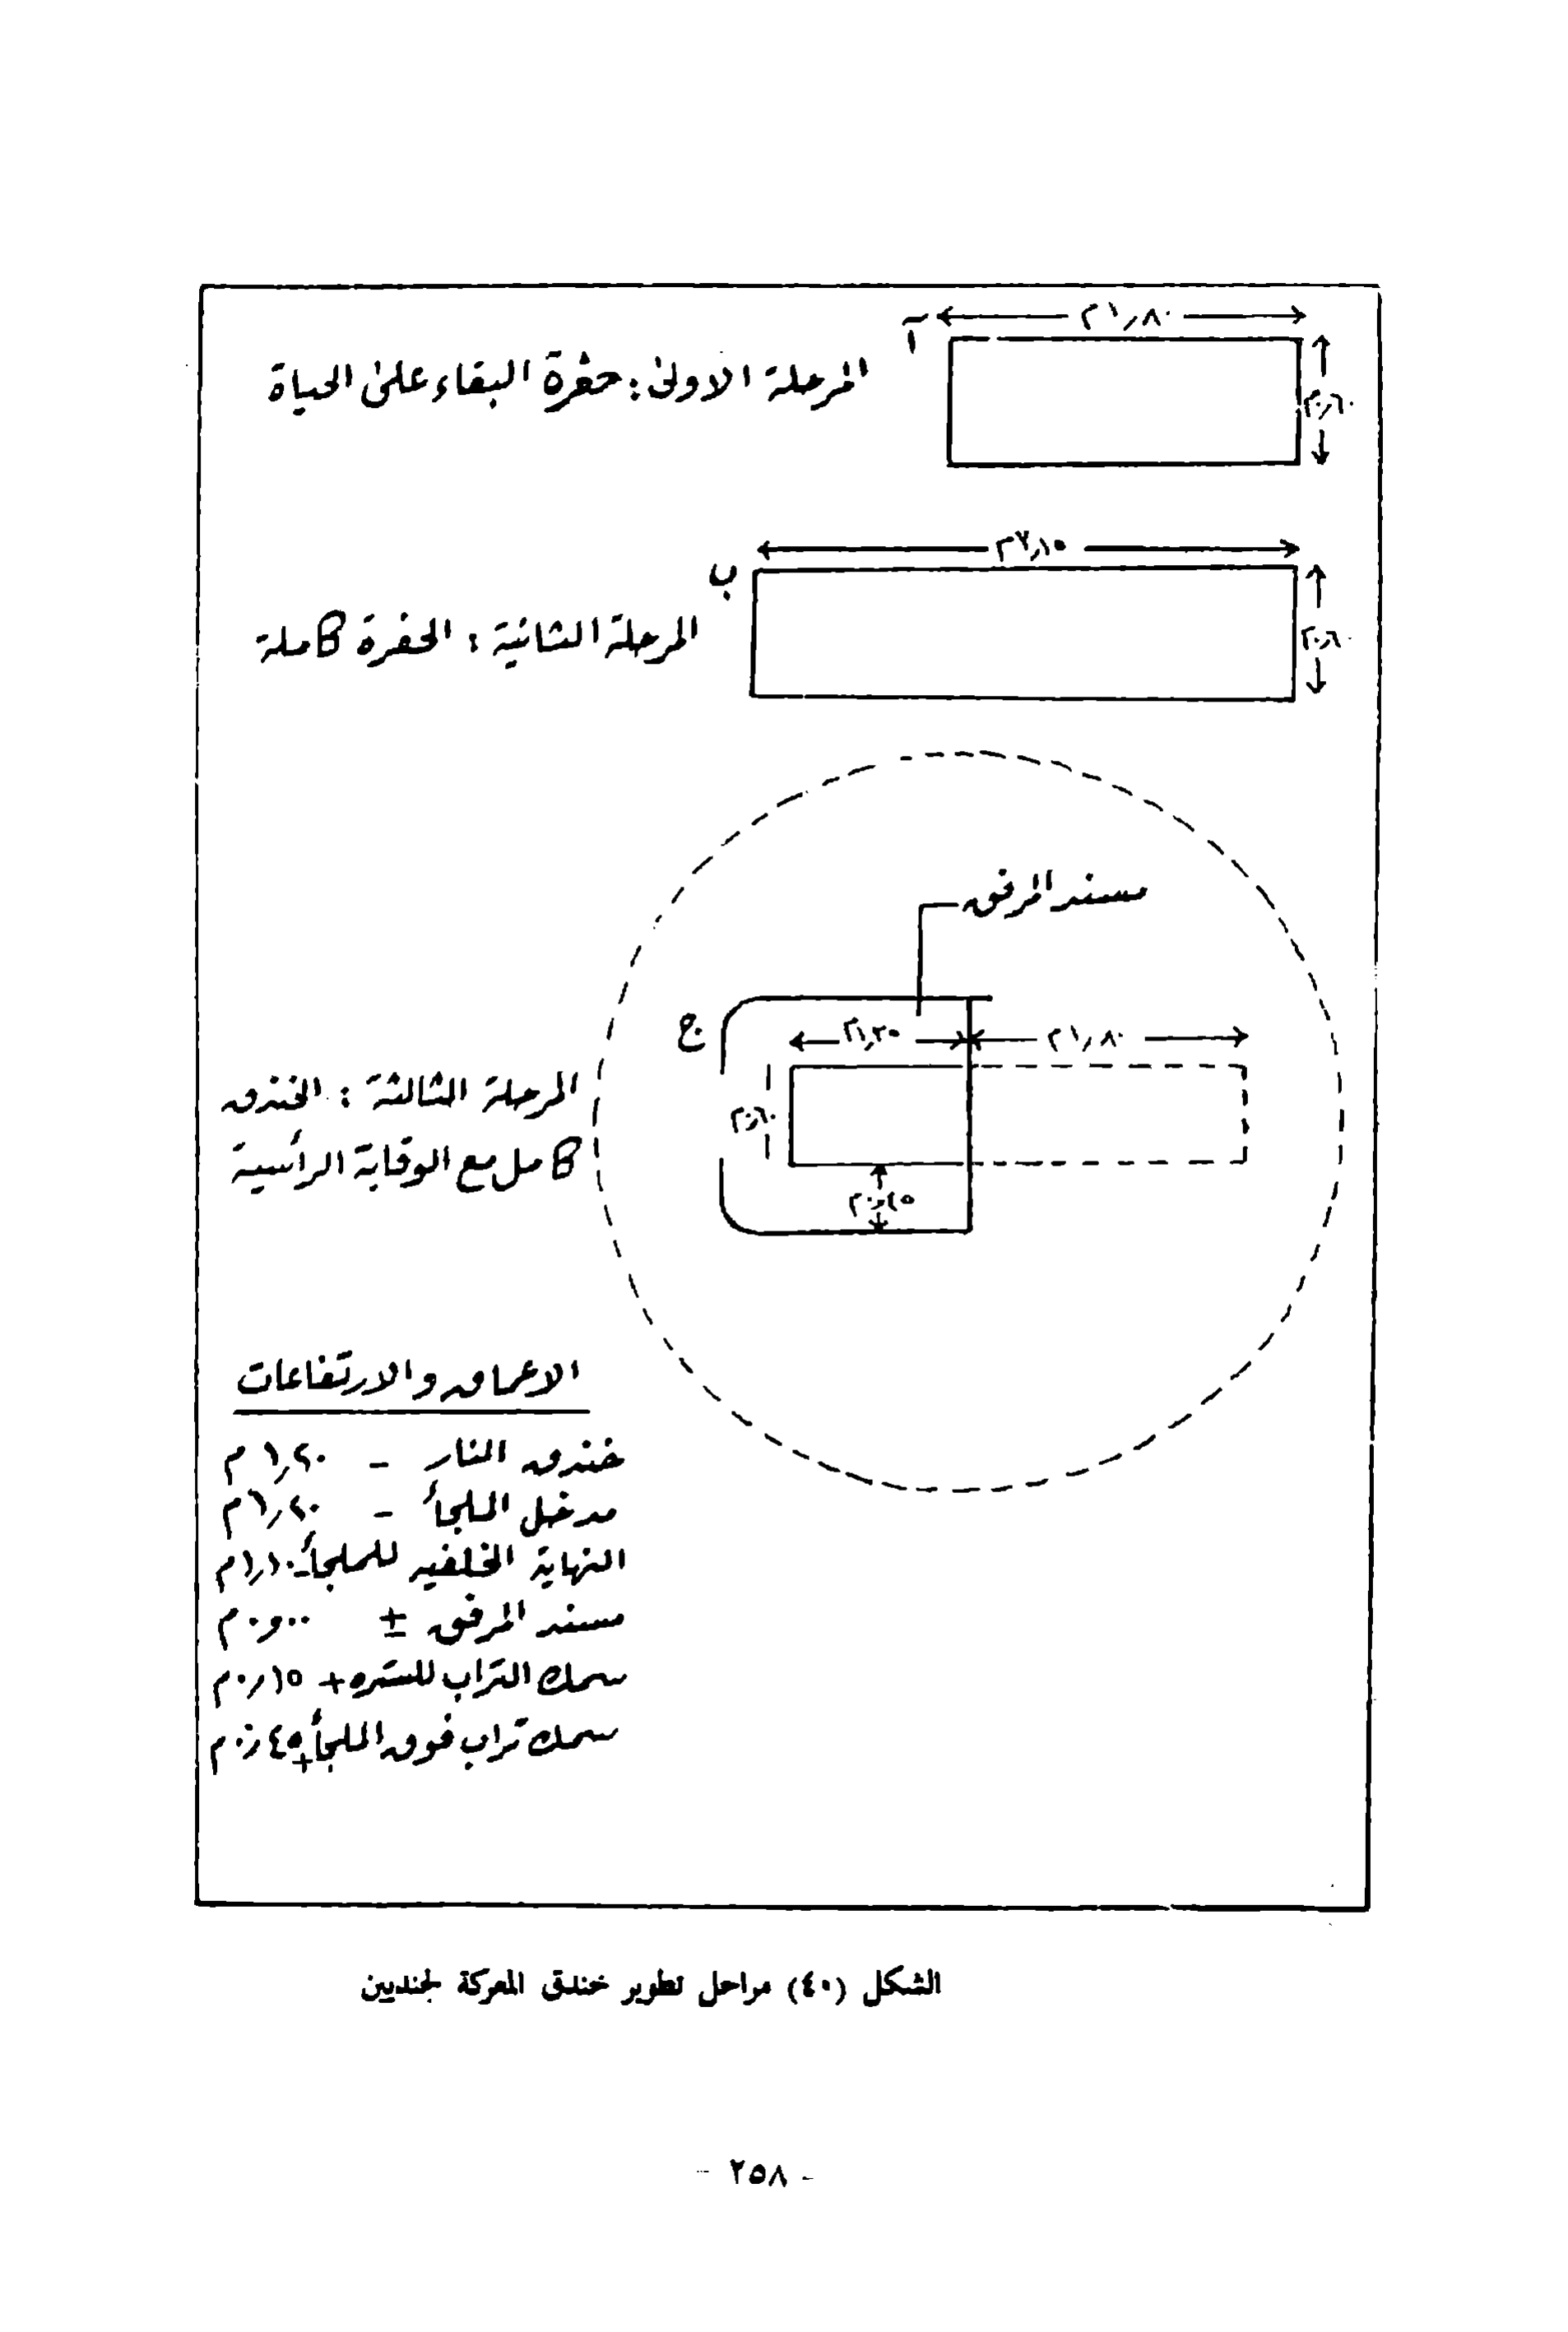 آ
١,٨٠م
٠,٦٠م
المرحلة الاولى: حفرة البقاء على الحياة
ب
٠,٦٠م
المرحلة الثانية : الحفرة كاملة
مسند المرفق
ج
١,٨٠م
٠,٦٠م
المرحلة الثالثة : الخندق
كامل مع الوقاية الرأسية
الاعماق والارتفاعات
خندق النار - ١,٢٠ م
مدخل الملجأ - ١,٢٠م
النهاية الخلفيه للملجأ - ١,١٠م
مسند المرفق ± ٠,٠٠ م
سمك التراب للستره + ٠,١٥ م
سمك تراب فوق الملجأ + ٠,٤٥ م
الشكل (٤٠) مراحل تطوير خندق المعركة لجنديين
- ٢٥٨ -